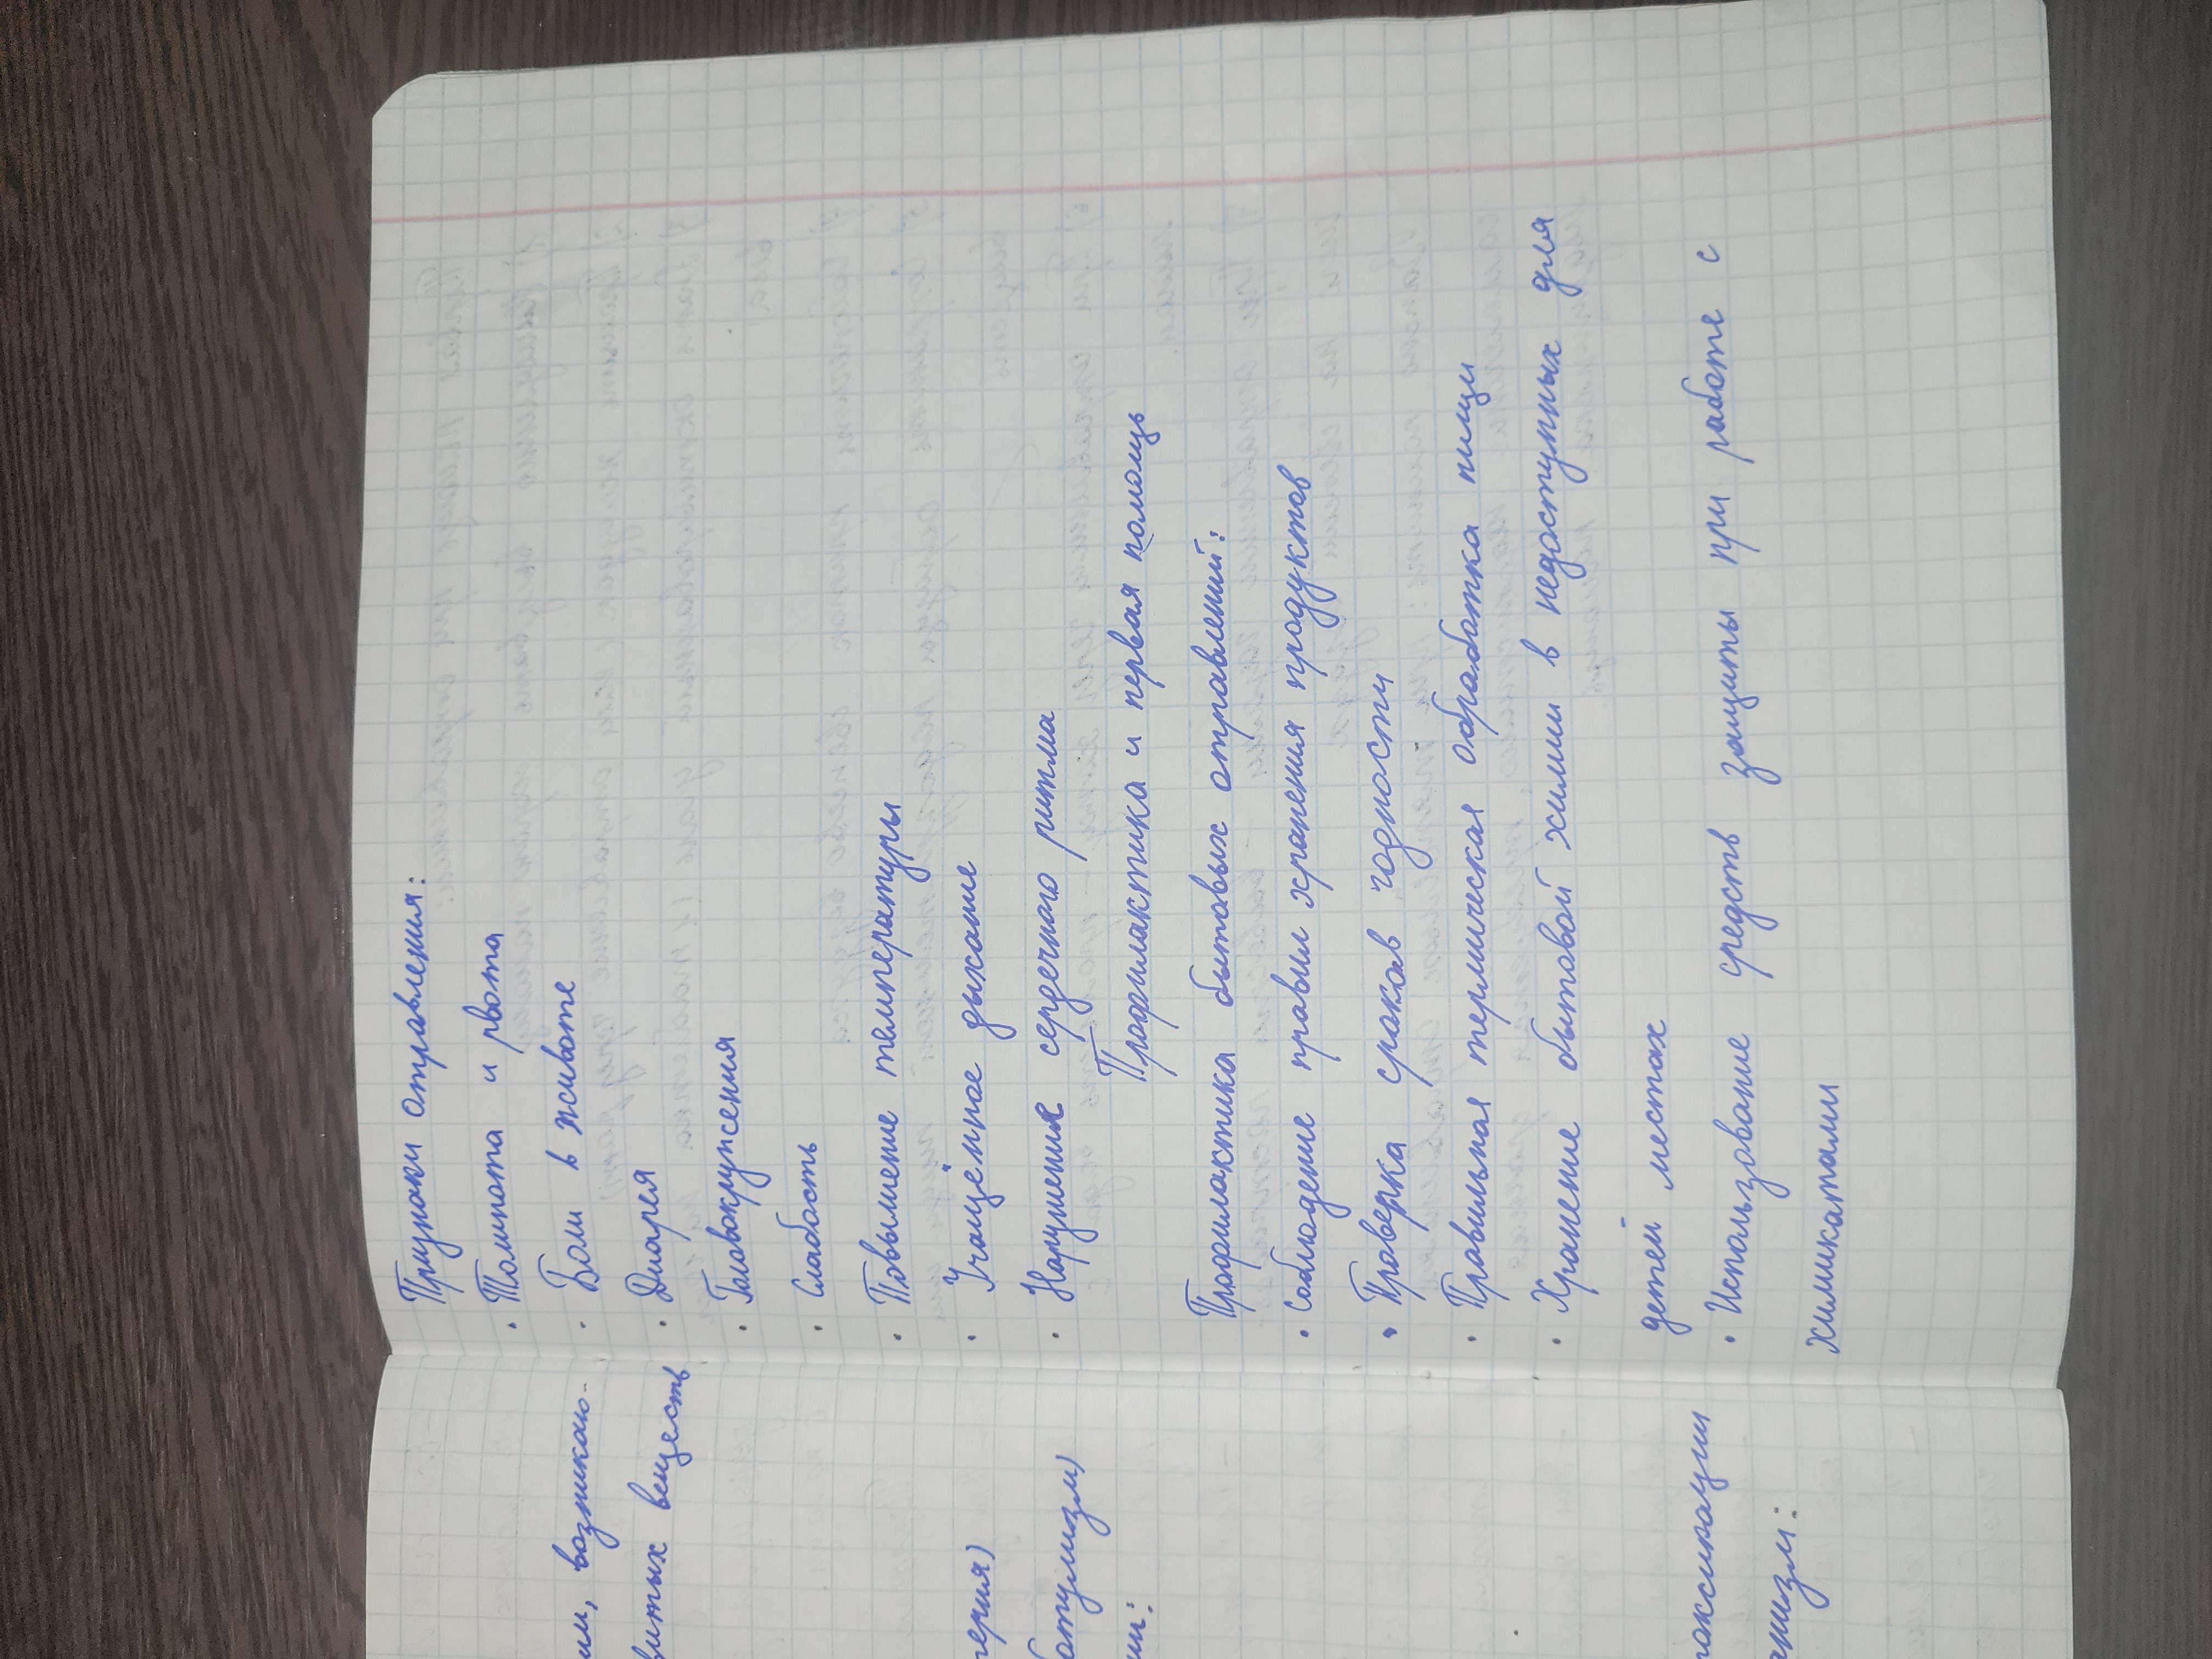 им, возникаю-
витых веществ
терия)
ботулизм)
ии:
токсикации
низм:
Признаки отравления:
• Тошнота и рвота
• Боли в животе
• Диарея
• Головокружения
• Слабость
• Повышение температуры
• Учащённое дыхание
• Нарушение сердечного ритма
Профилактика и первая помощь
Профилактика бытовых отравлений:
• Соблюдение правил хранения продуктов
• Проверка сроков годности
• Правильная термическая обработка пищи
• Хранение бытовой химии в недоступных для
детей местах
• Использование средств защиты при работе с
химикатами